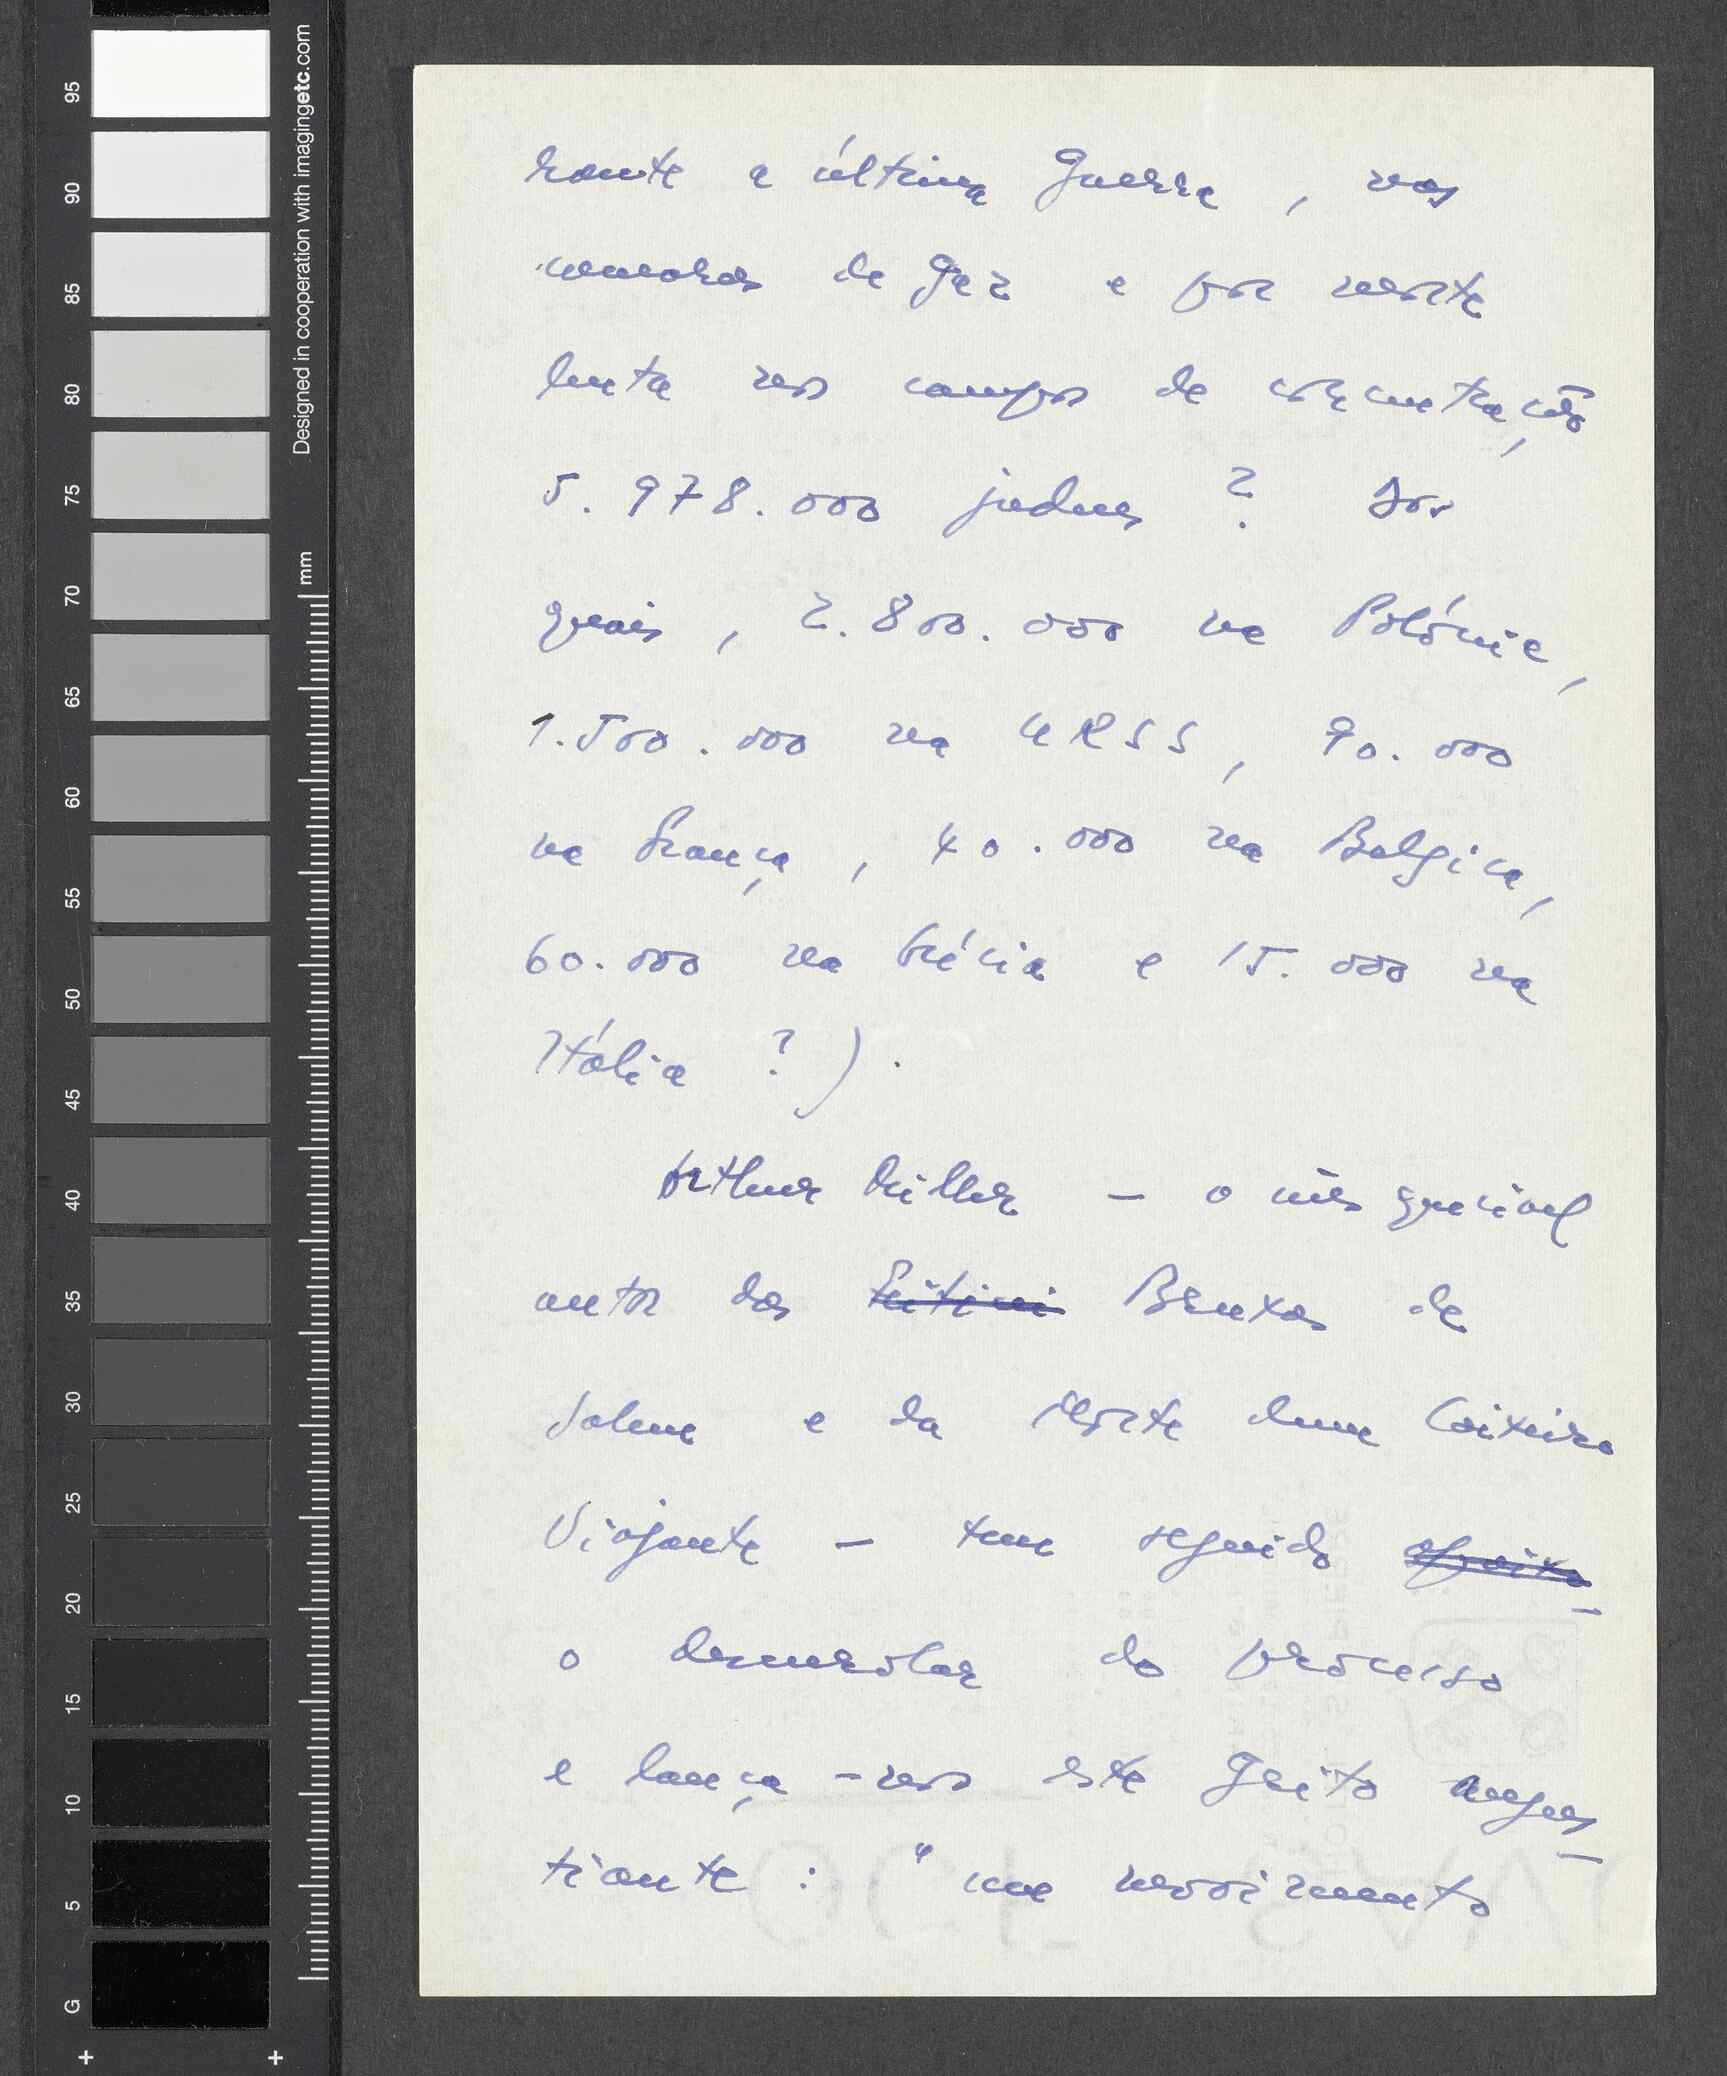 95
90
85
80
75
70
65
60
55
50
45
40
35
30
25
20
15
10
5
G
Designed in cooperation with imagingetc.com
mm
rante a última guerra, nas
camaras de gaz e por morte
lenta nos campos de concentração
5.978.000 judeus? Dos
quais, 2.800.000 na Polónia,
1.500.000 na URSS, 90.000
na França, 40.000 na Belgica,
60.000 na Grécia e 15.000 na
Itália?).
Arthur Miller — o inesquecivel
autor das Bruxas de
Salem e da Morte dum Caixeiro
Viajante — tem seguido
o desenrolar do processo
e lança-nos este grito angus-
tiante: "um movimento